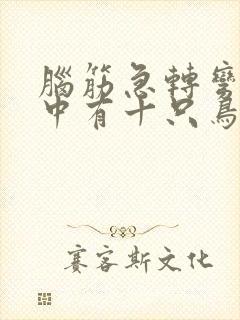 腦筋急轉彎
中有十只鳥
賽客斯文化